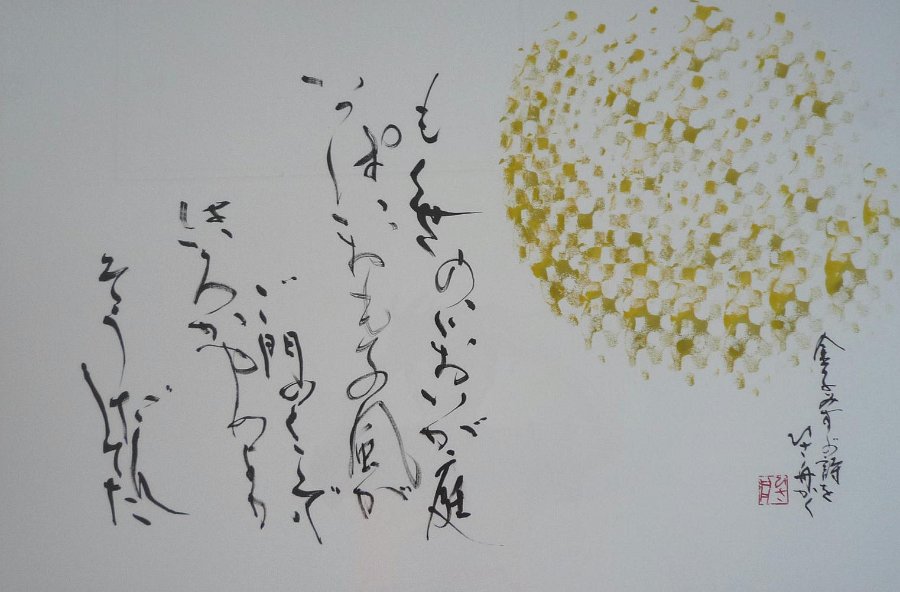 もくせいのにおいが庭
いっぱいおもての風が
ご門のとこで
はいろかやめよか
そうだん
してた
金子みすゞの詩を
かく